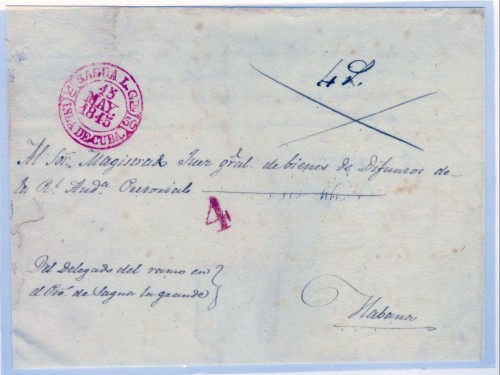 SAGUA L. G.
15
MAY.
1845
ISLA DE CUBA
4 L.
Al Sor. Magistrado Juez gral. de bienes de Difuntos de
la Rl. Auda. Pretorial
4
Del Delegado del ramo en
el Pto. de Sagua la grande
Habana